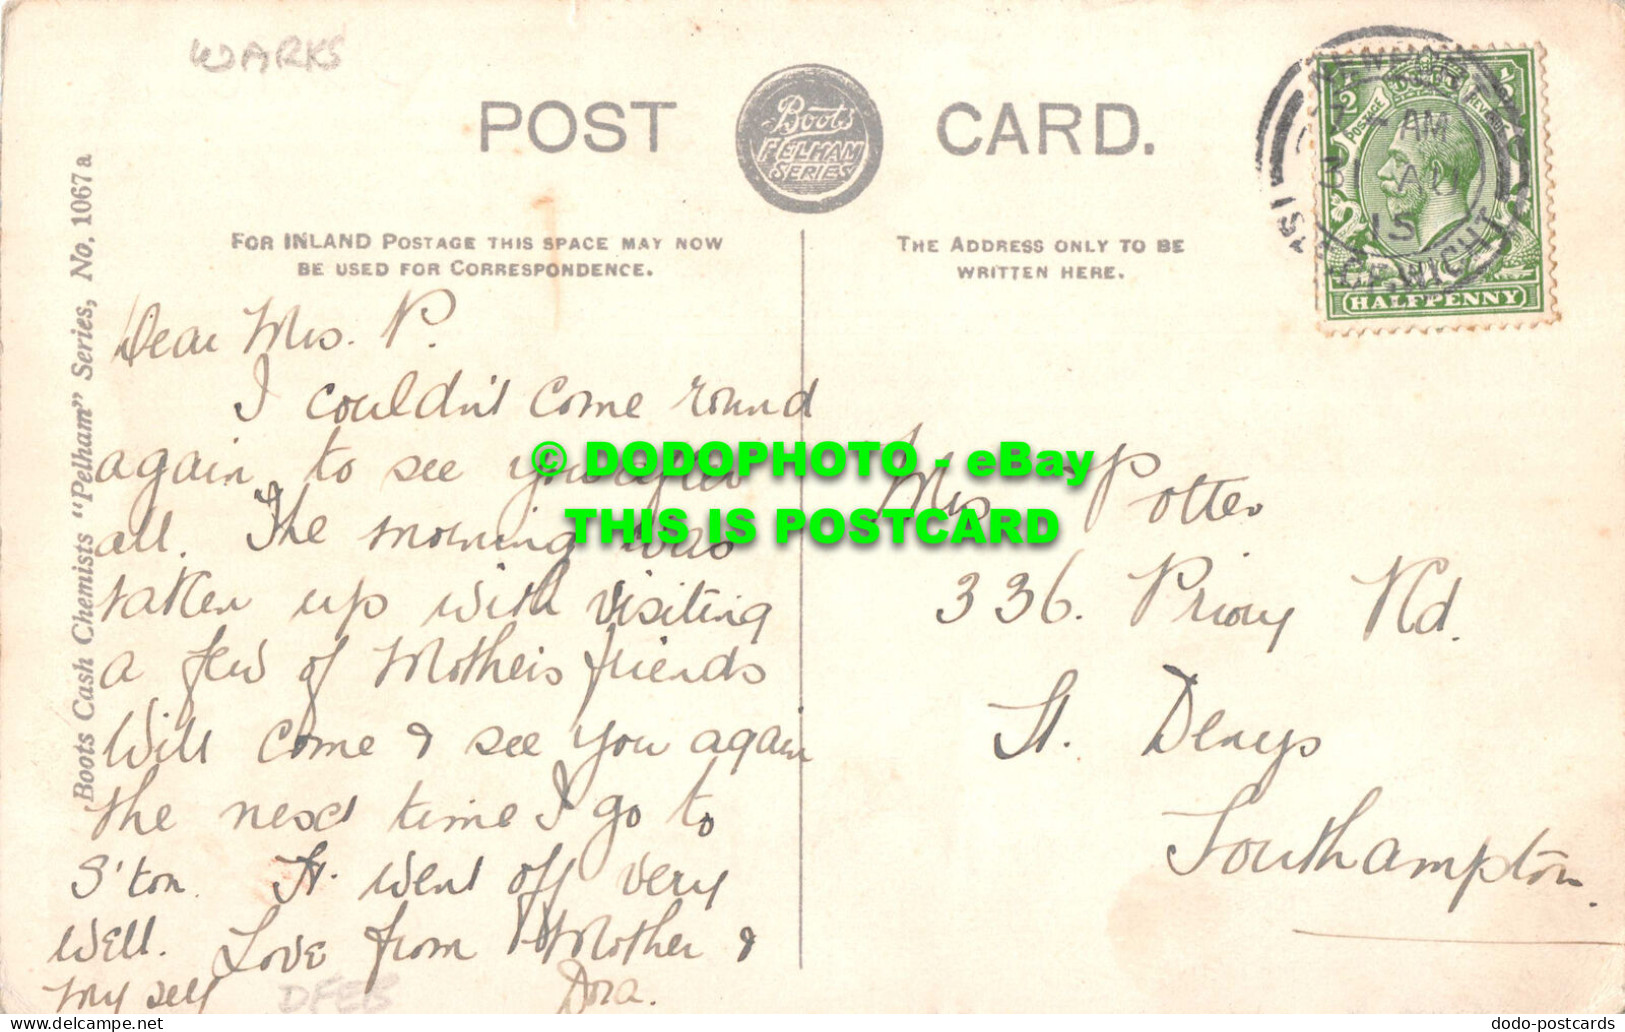 WARKS
POST CARD.
Boots
PELHAM
SERIES
FOR INLAND POSTAGE THIS SPACE MAY NOW
BE USED FOR CORRESPONDENCE.
THE ADDRESS ONLY TO BE
WRITTEN HERE.
Boots Cash Chemists "Pelham" Series, No. 1067 a
Dear Mrs. P.
I couldn't come round
again to see you after
all. The morning was
taken up with visiting
a few of Mother's friends
Will come & see you again
the next time I go to
S'ton. It went off very
well. Love from Mother &
myself Dora.
DFEB
Mrs Potter
336. Priory Rd.
St. Denys
Southampton.
POSTAGE REVENUE
1/2 1/2
HALFPENNY
NEWPORT
AM
15
I. OF WIGHT
151
© DODOPHOTO - eBay
THIS IS POSTCARD
dodo-postcards